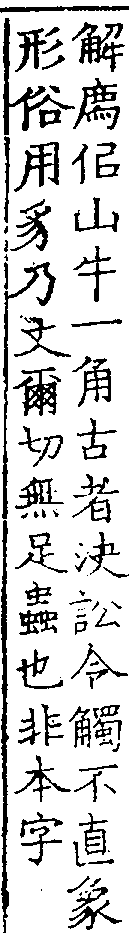 解廌佀山牛一角古者決訟令觸不直象
形俗用豸乃文爾切無足蟲也非本字